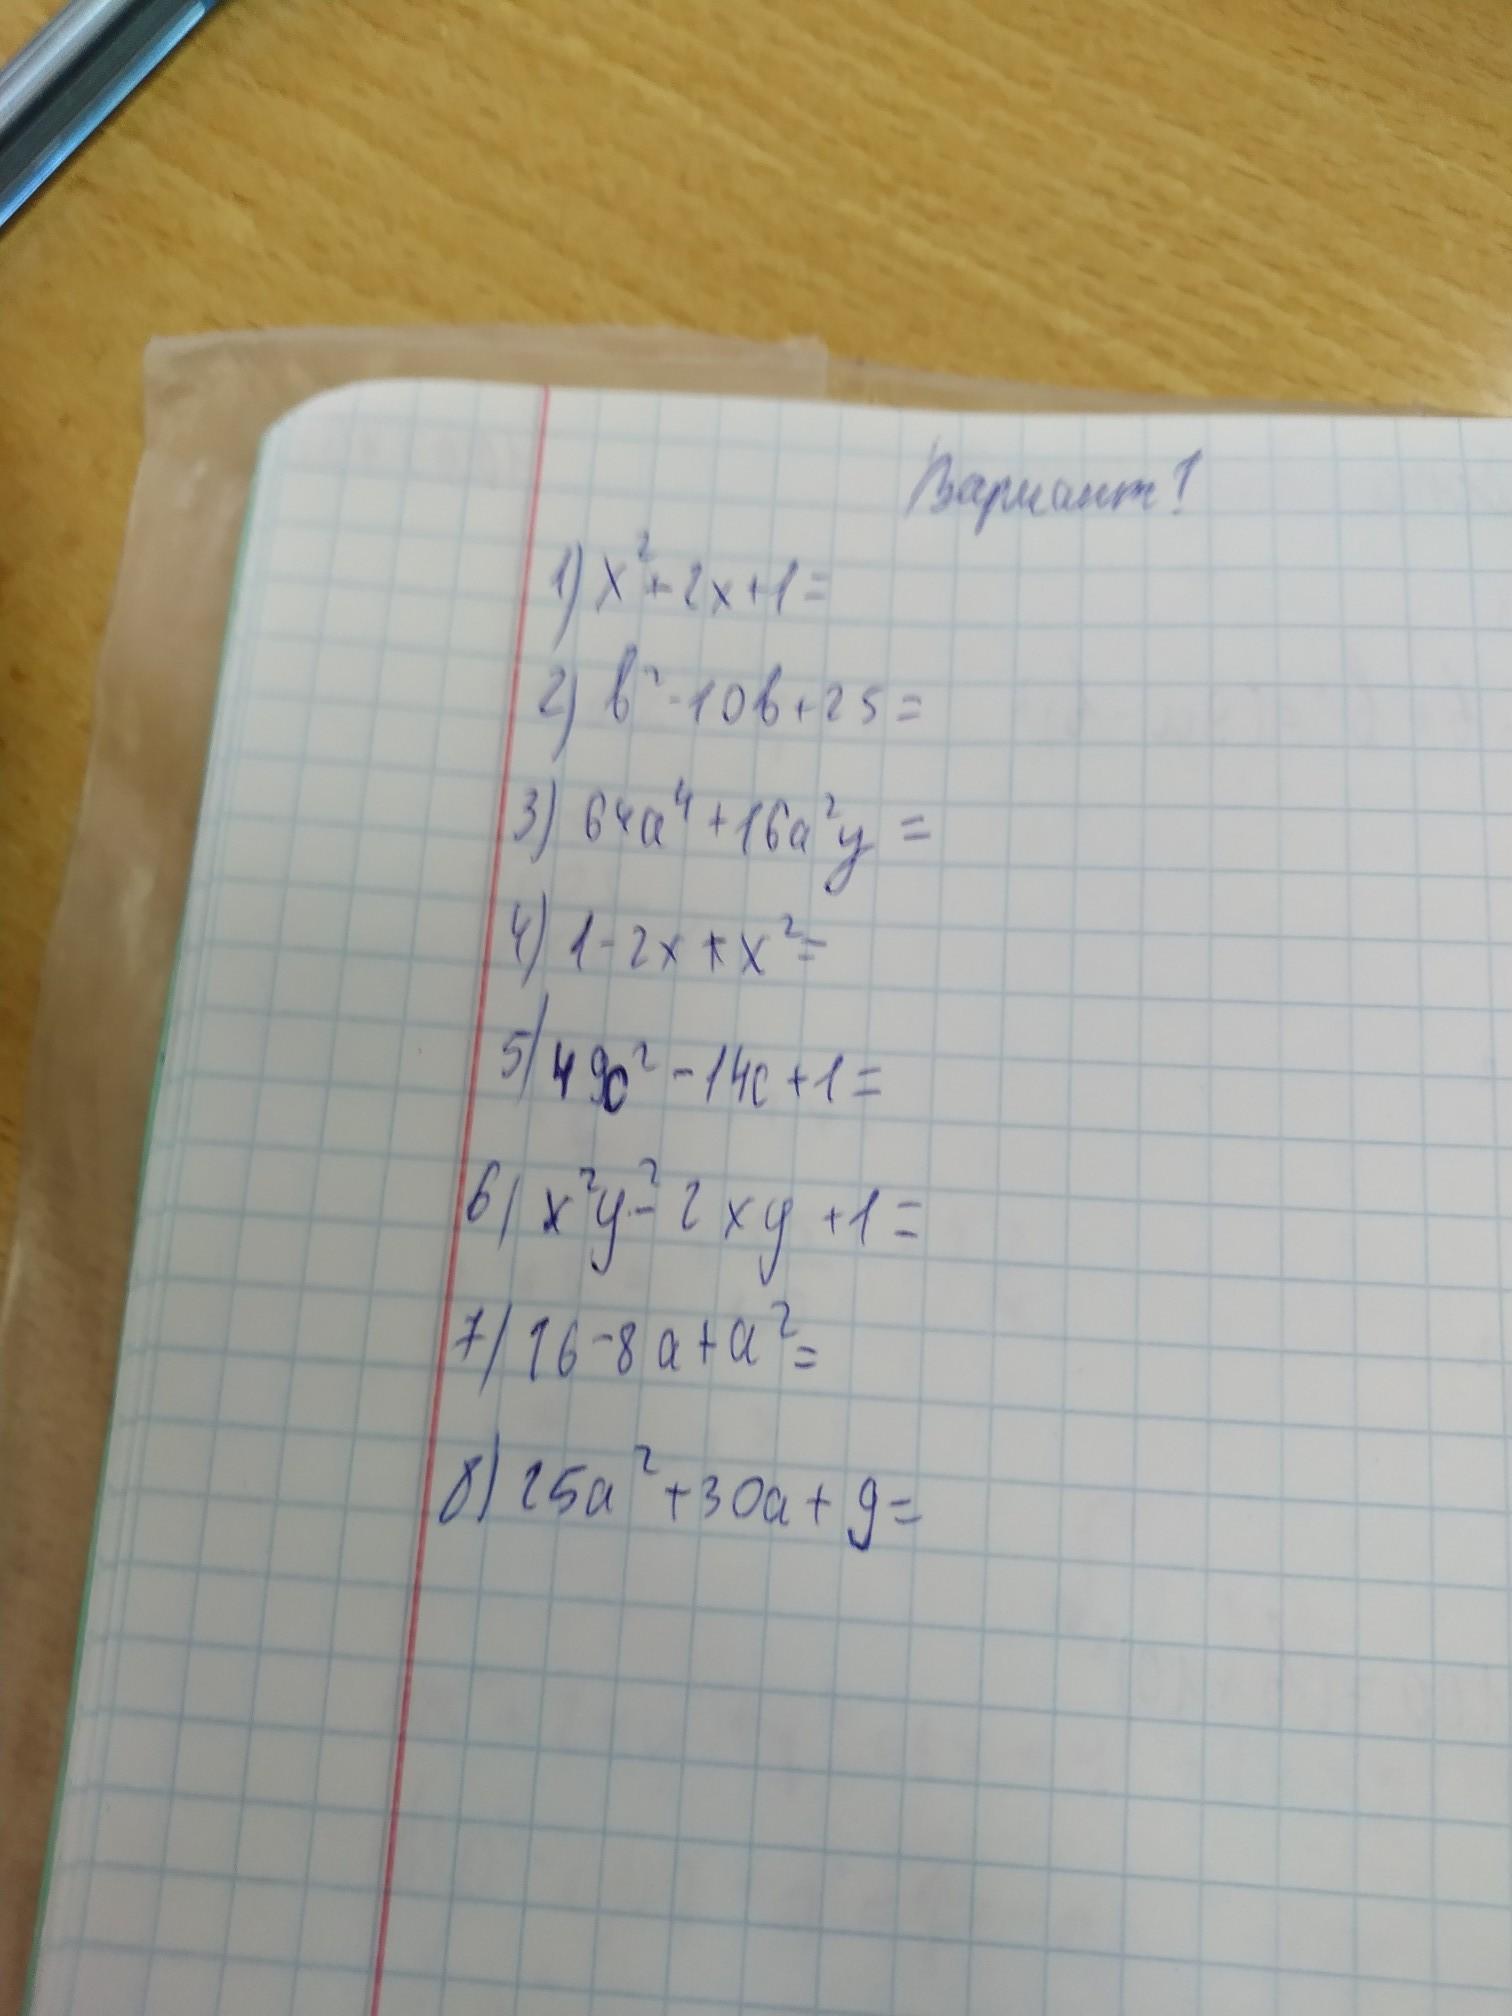 Вариант 1
1) x²+2x+1=
2) b²-10b+25=
3) 64a⁴+16a²y=
4) 1-2x+x²=
5) 49c²-14c+1=
6) x²y²-2xy+1=
7) 16-8a+a²=
8) 25a²+30a+9=